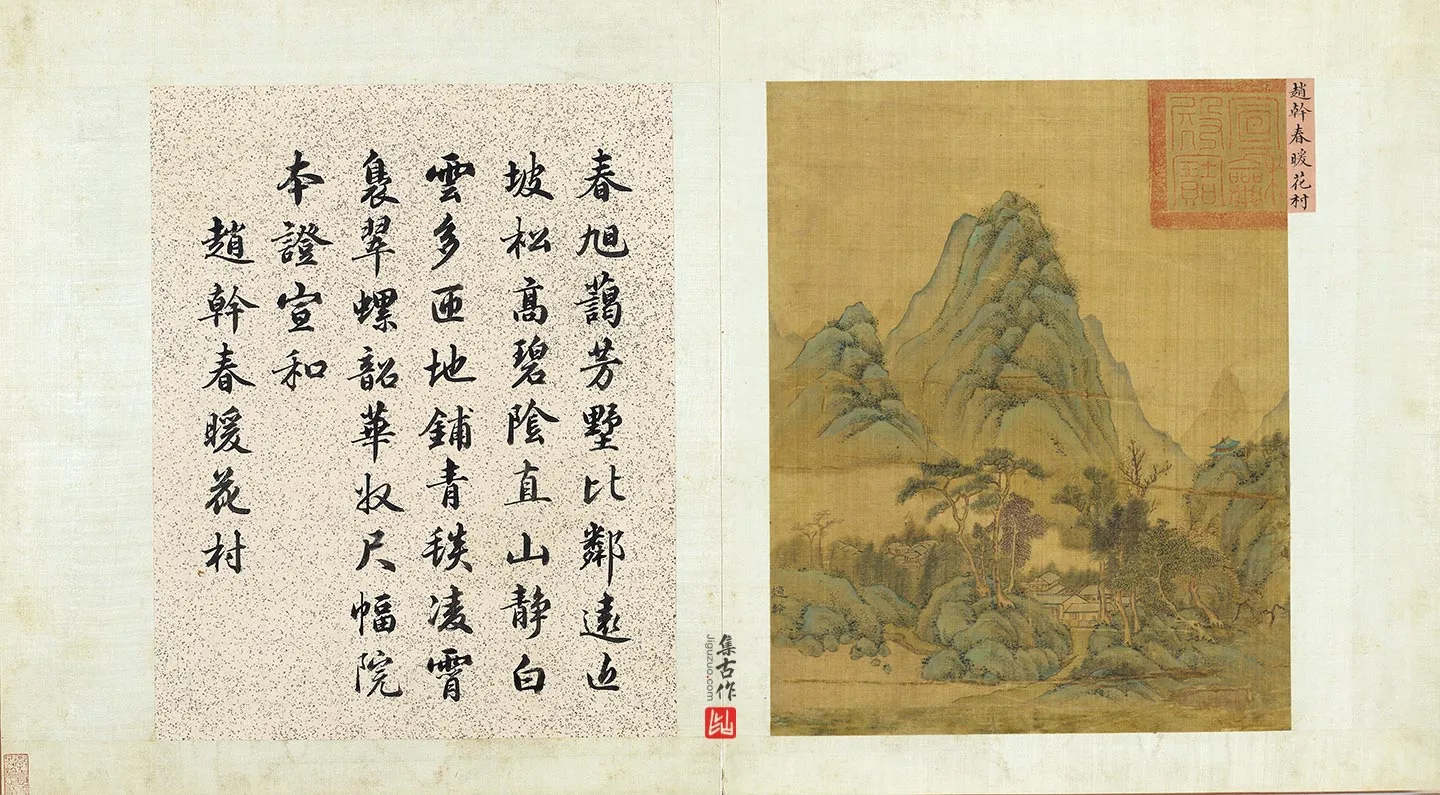 趙幹春暖花村
春旭藹芳墅比鄰遠近
坡松高碧陰直山靜白
雲多匝地鋪青毯凌霄
裊翠螺韶華收尺幅院
本證宣和
趙幹春暖花村
集古作
Jiguzuo.com